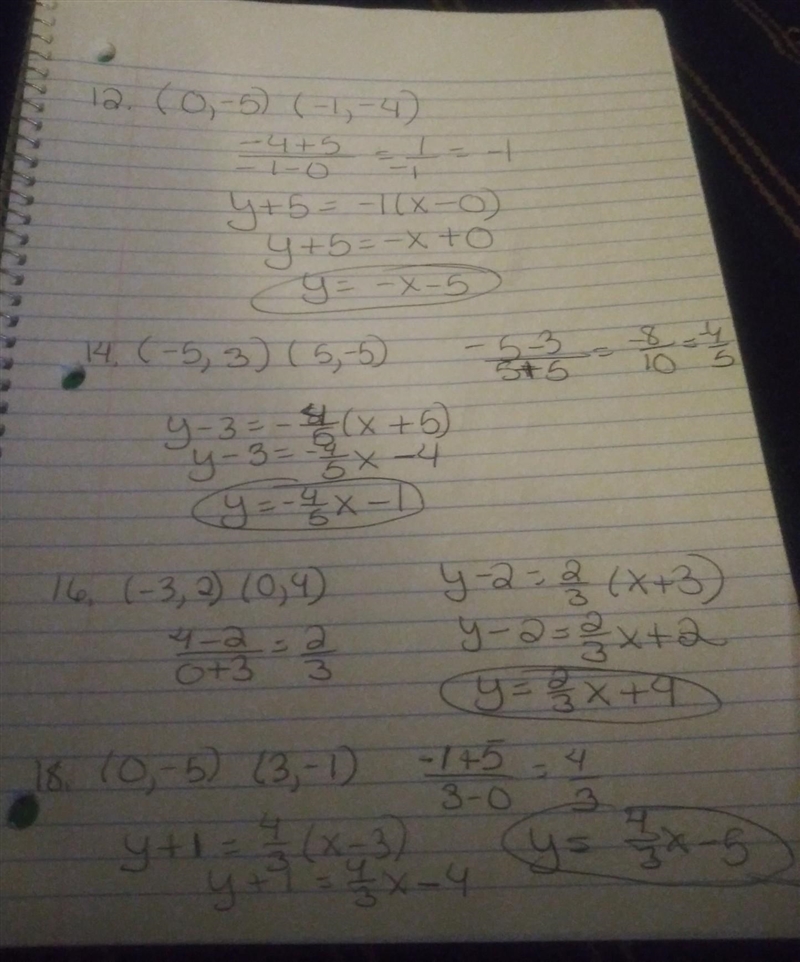 12. (0,-5) (-1,-4)
-4+5/-1-0 = 1/-1 = -1
y+5 = -1(x-0)
y+5 = -x+0
y = -x-5
14. (-5, 3) (5,-5) -5-3/5+5 = -8/10 = -4/5
y-3 = -4/5(x+5)
y-3 = -4/5x-4
y = -4/5x-1
16. (-3,2) (0,4)
4-2/0+3 = 2/3
y-2 = 2/3 (x+3)
y-2 = 2/3x+2
y = 2/3x+4
18. (0,-5) (3,-1) -1+5/3-0 = 4/3
y+1 = 4/3(x-3)
y+1 = 4/3x-4
y = 4/3x-5